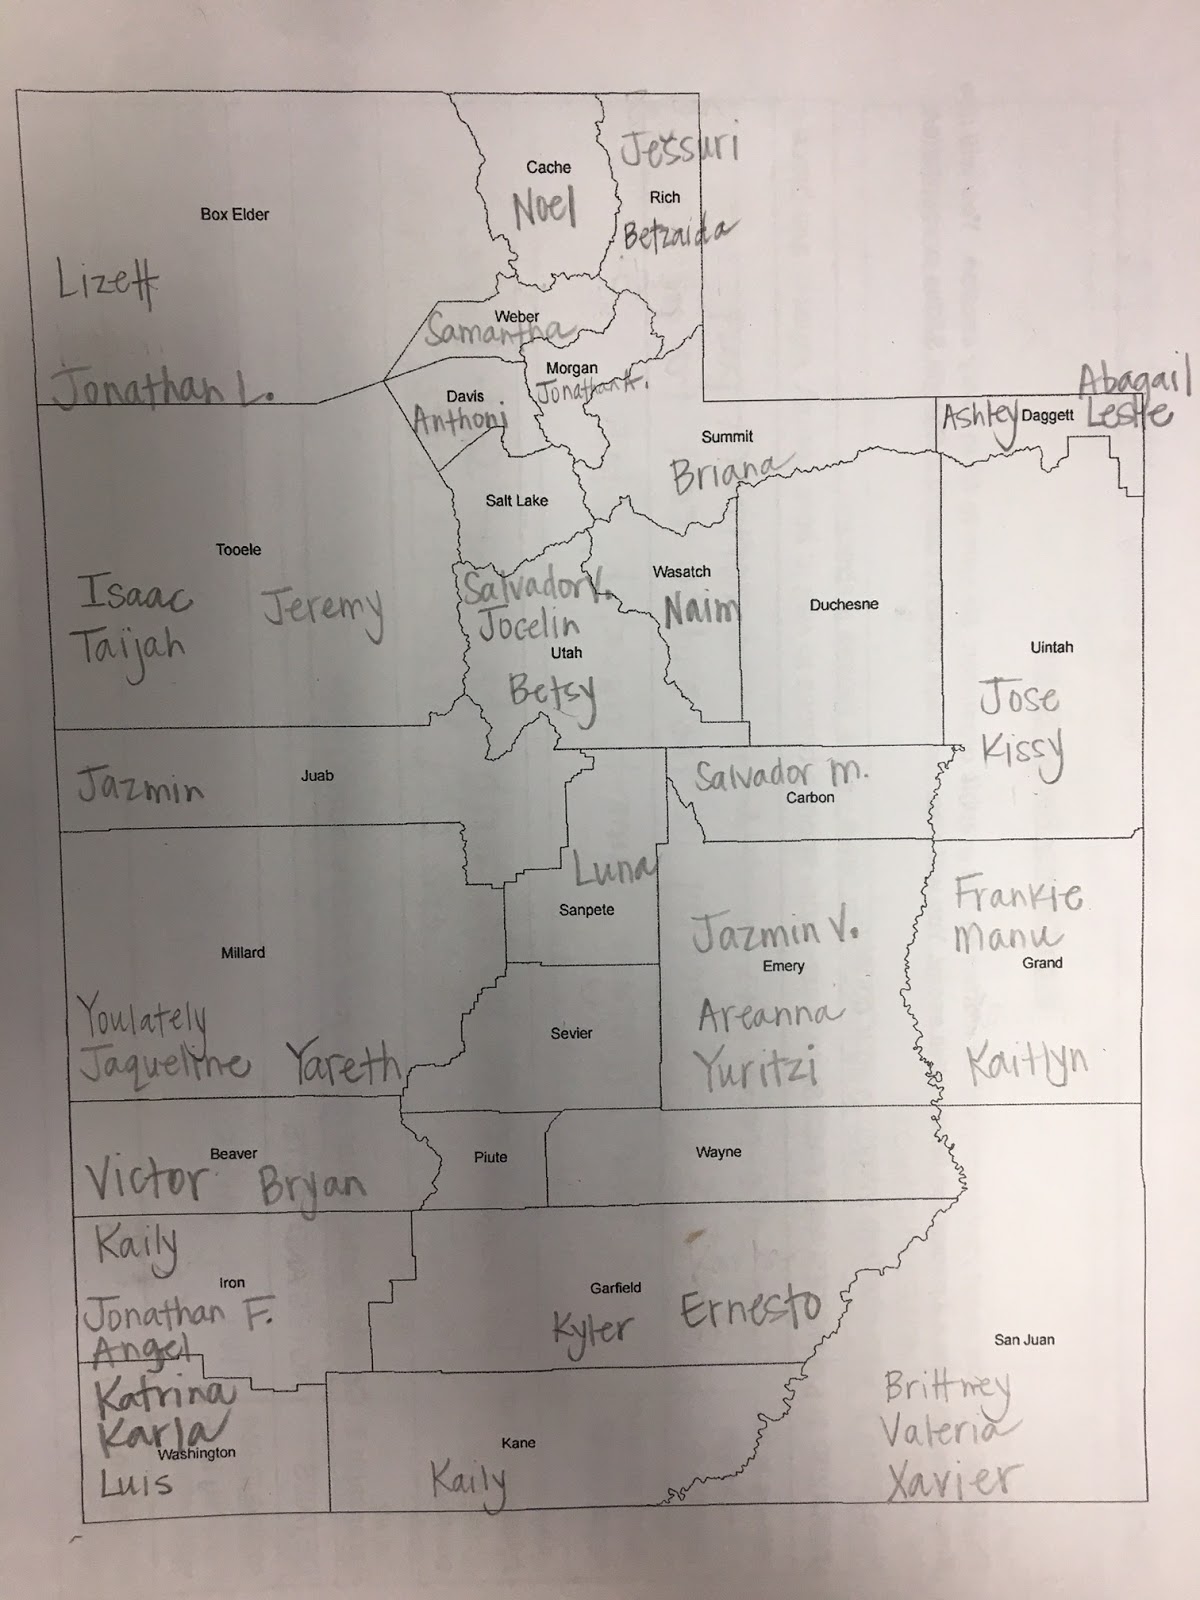 Jessuri
Cache
Rich
Noel
Box Elder
Betzaida
Lizett
Weber
Samantha
Morgan
Jonathan L.
Jonathan A.
Abagail
Davis
Anthoni
Ashley Daggett Leslie
Summit
Briana
Salt Lake
Tooele
Wasatch
Isaac Jeremy
Salvador V.
Naim
Duchesne
Taijah
Jocelin
Utah
Uintah
Betsy
Jose
Kissy
Jazmin
Juab
Salvador M.
Carbon
Luna
Sanpete
Frankie
Manu
Grand
Jazmin V.
Emery
Millard
Youlately
Jaqueline Yareth
Sevier
Areanna
Yuritzi
Kaitlyn
Beaver
Victor Bryan
Piute
Wayne
Kaily
Iron
Jonathan F.
Angel
Garfield
Kyler Ernesto
San Juan
Katrina
Karla
Washington
Luis
Kane
Kaily
Brittney
Valeria
Xavier